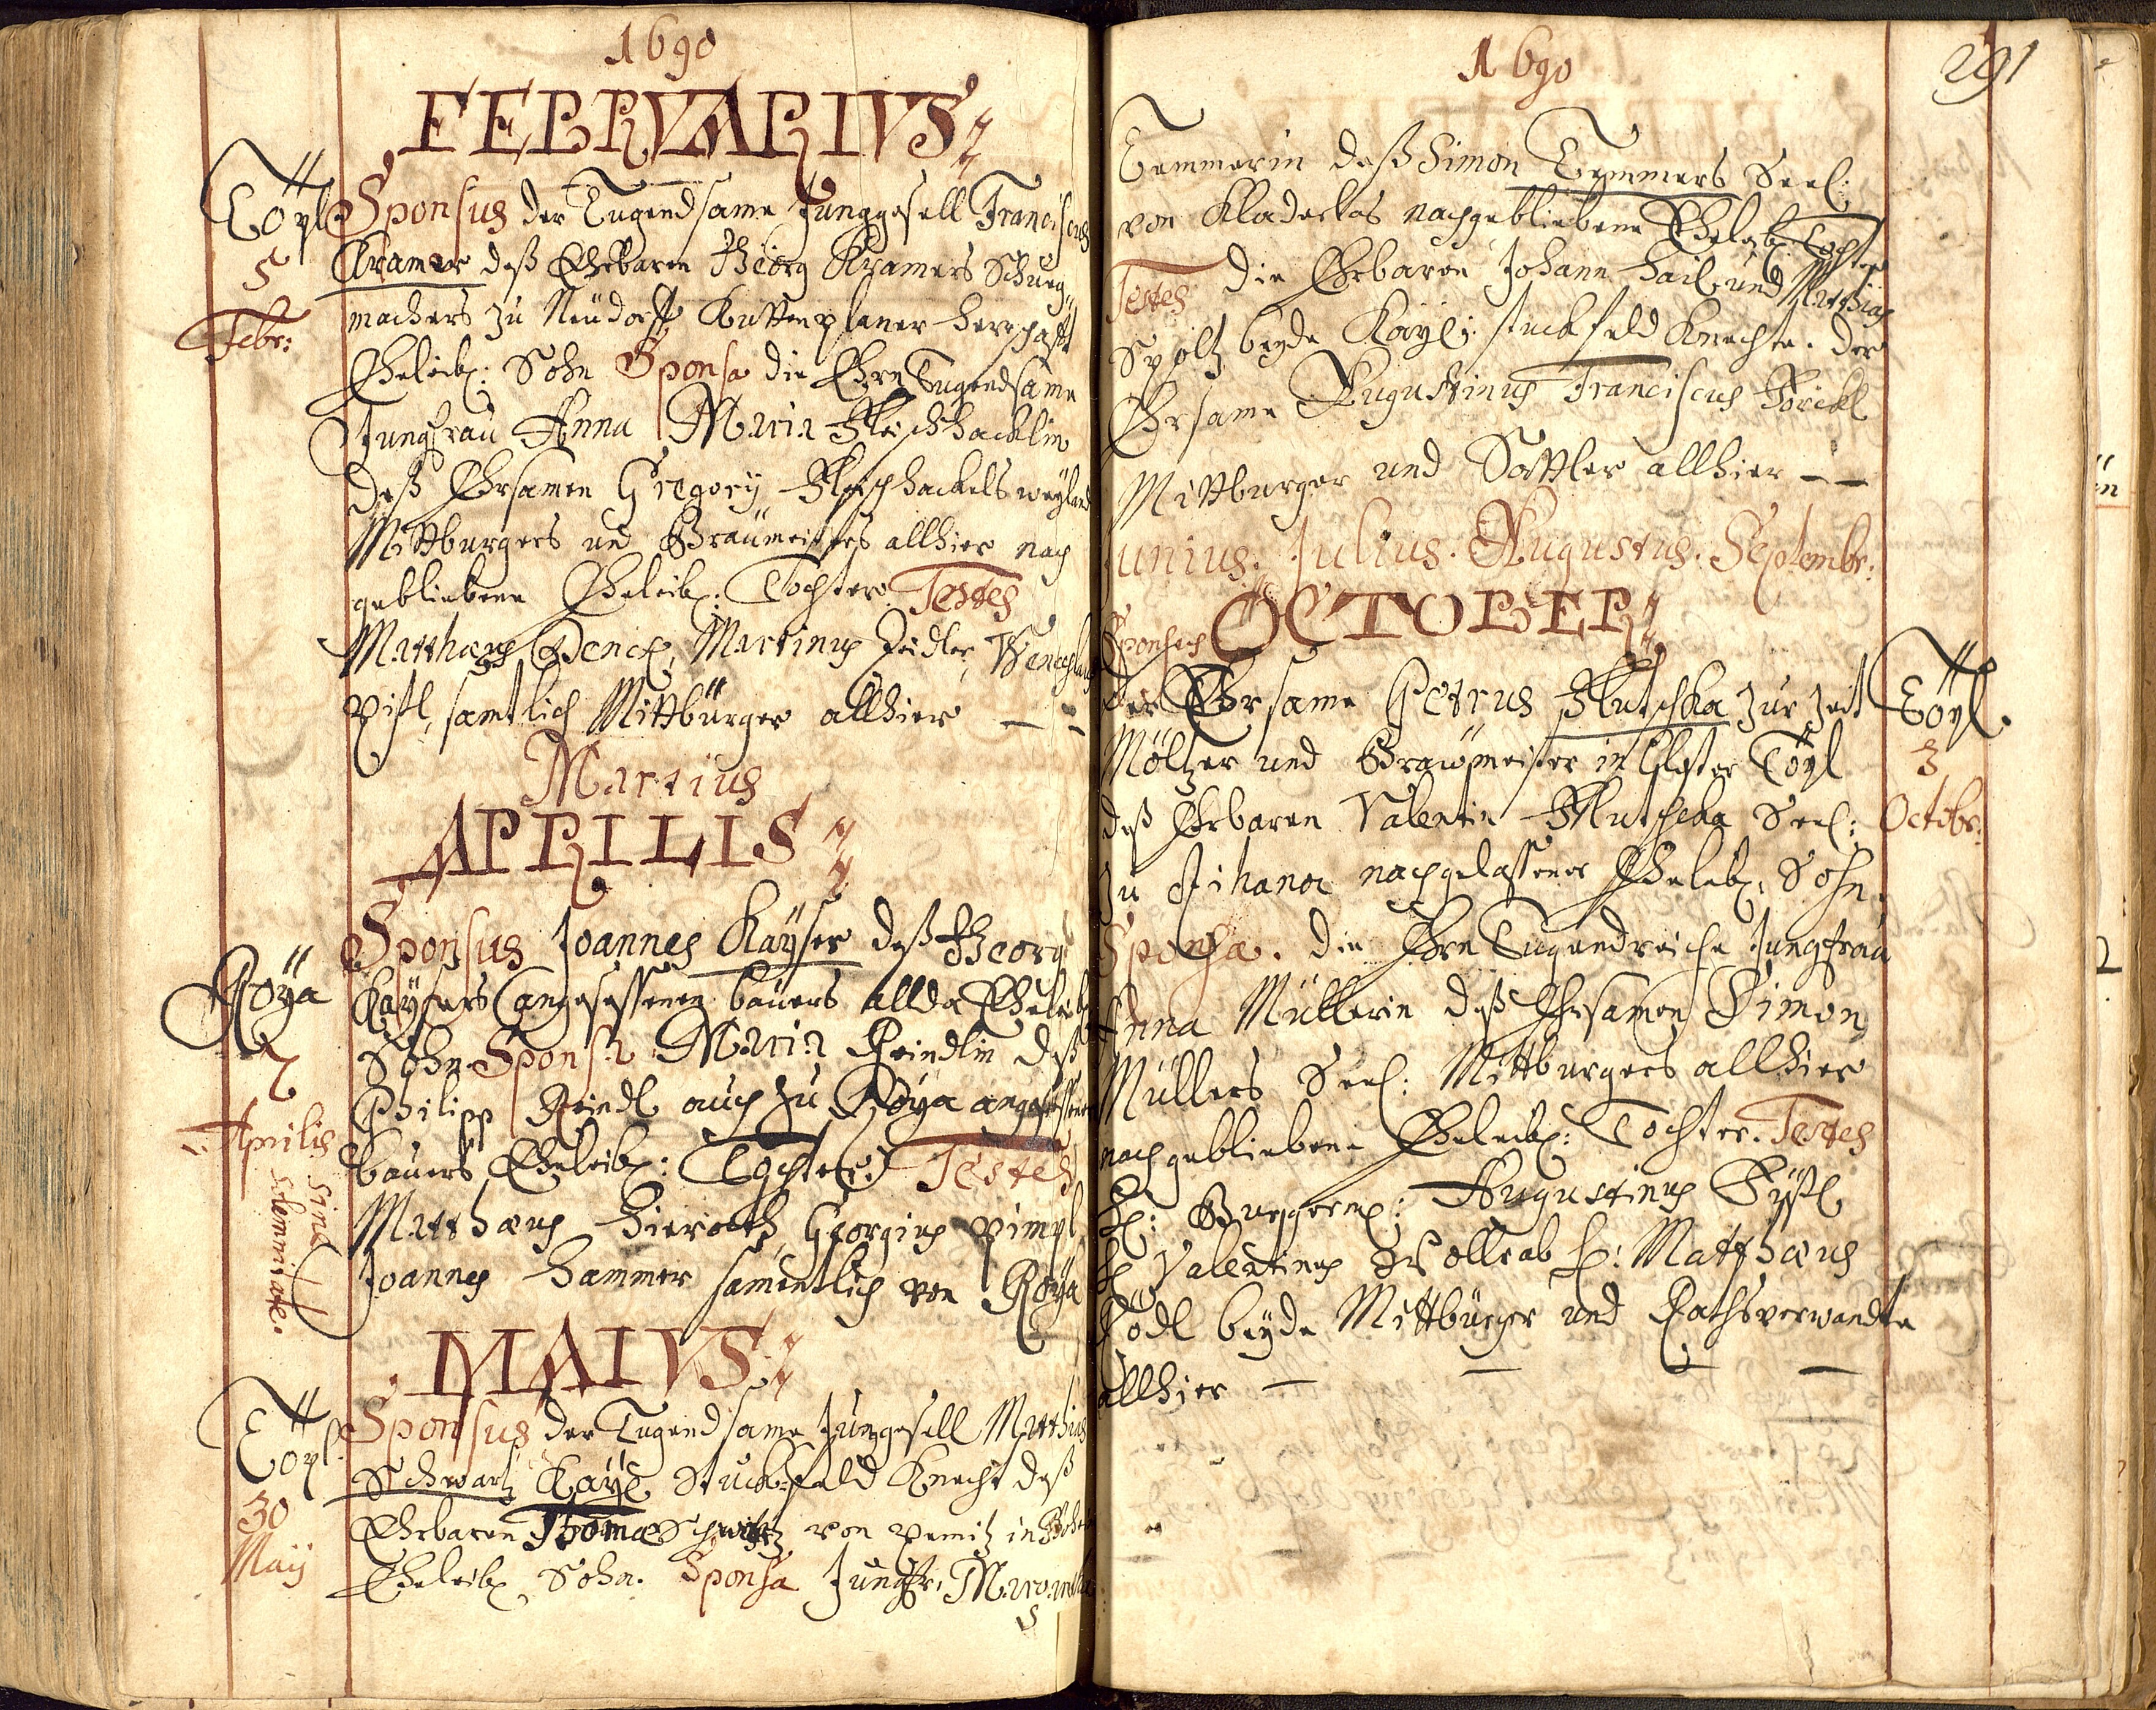 1690
FEBRVARIVS
Töpl
5
Febr:
Sponsus der Tugendsame Junggesell Franciscus
Kramer deß Ehrbaren Georg Kramers Schueg„
machers zu Neudorff Kuttenplaner herrschafft
Eheleibl: Sohn Sponsa die Ehrn Tugendsame
Jungfrau Anna Maria Fleischhacklin
deß Ehrsamen Gregory Fleischhackels weyland
Mittburgers und Braumeisters allhier nach
gebliebene Eheleibl: Tochter Testes
Matthaeus Denck, Martinus Zeidler, Wenceslaus
samtlich Mittbürger allhier — -
Martius
APRILIS
Roya
2
Aprilis
sine
solemnitate.
Sponsus Joannes Kayser deß Georg
Kaysers angesessenen bauers allda Eheleibl
Sohn Sponsa Maria Reindlin deß
Philipp Reindl auch zu Roya angesessenen
bauers Eheleibl: Tochter Testes
Matthaeus Georgius Pimpl
Joannes Hammer samentlich von Roya
MAIVS
Töpl
30
Maÿ
Sponsus der Tugendsame Jungesell Matthias
Schwartz Kaÿl Stuckfeld Knecht deß
Ehrbaren Thomae Schwartz von in Böhmen
Eheleibl Sohn. Sponsa Jungfr: Margaretha
1690
291
Temmerin deß Simon Temmers Seel:
von Kladeckas nachgebliebene Eheleibl Tochter
Testes die Ehrbaren Johann Hail und Matthias
Spoltz beyde Kaÿl: stuckfeld Knechte. der
Ehrsame Augustinus Franciscus
Mittburger und Sattler allhier — —
Junius. Julius. Augustus. Septembr:
OCTOBER
Sponsus
der Ehrsame Petrus Hlutschka zur Zeit
Töpl.
3
Octobr:
Möltzer und Braumeister in Closter Töpl
deß Ehrbaren Valentin Hlutscheka Seel:
zu nachgelassener Eheleibl: Sohn.
Sponsa. die Ehrn Tugendreiche Jungfrau
Anna Müllerin deß Ehrsamen Simon
Müllers Seel: Mittburgers allhier
nachgebliebene Eheleibl: Tochter. Testes
H: Burgerm: Augustinus
H Valentinus Wollrab H: Matthaeus
beyde Mittbürger und Rathsverwandte
allhier — — —